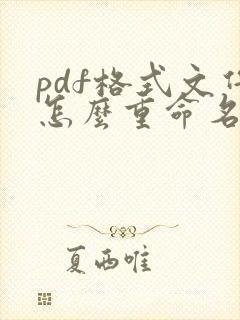 pdf格式文件
怎麼重命名
夏西唯